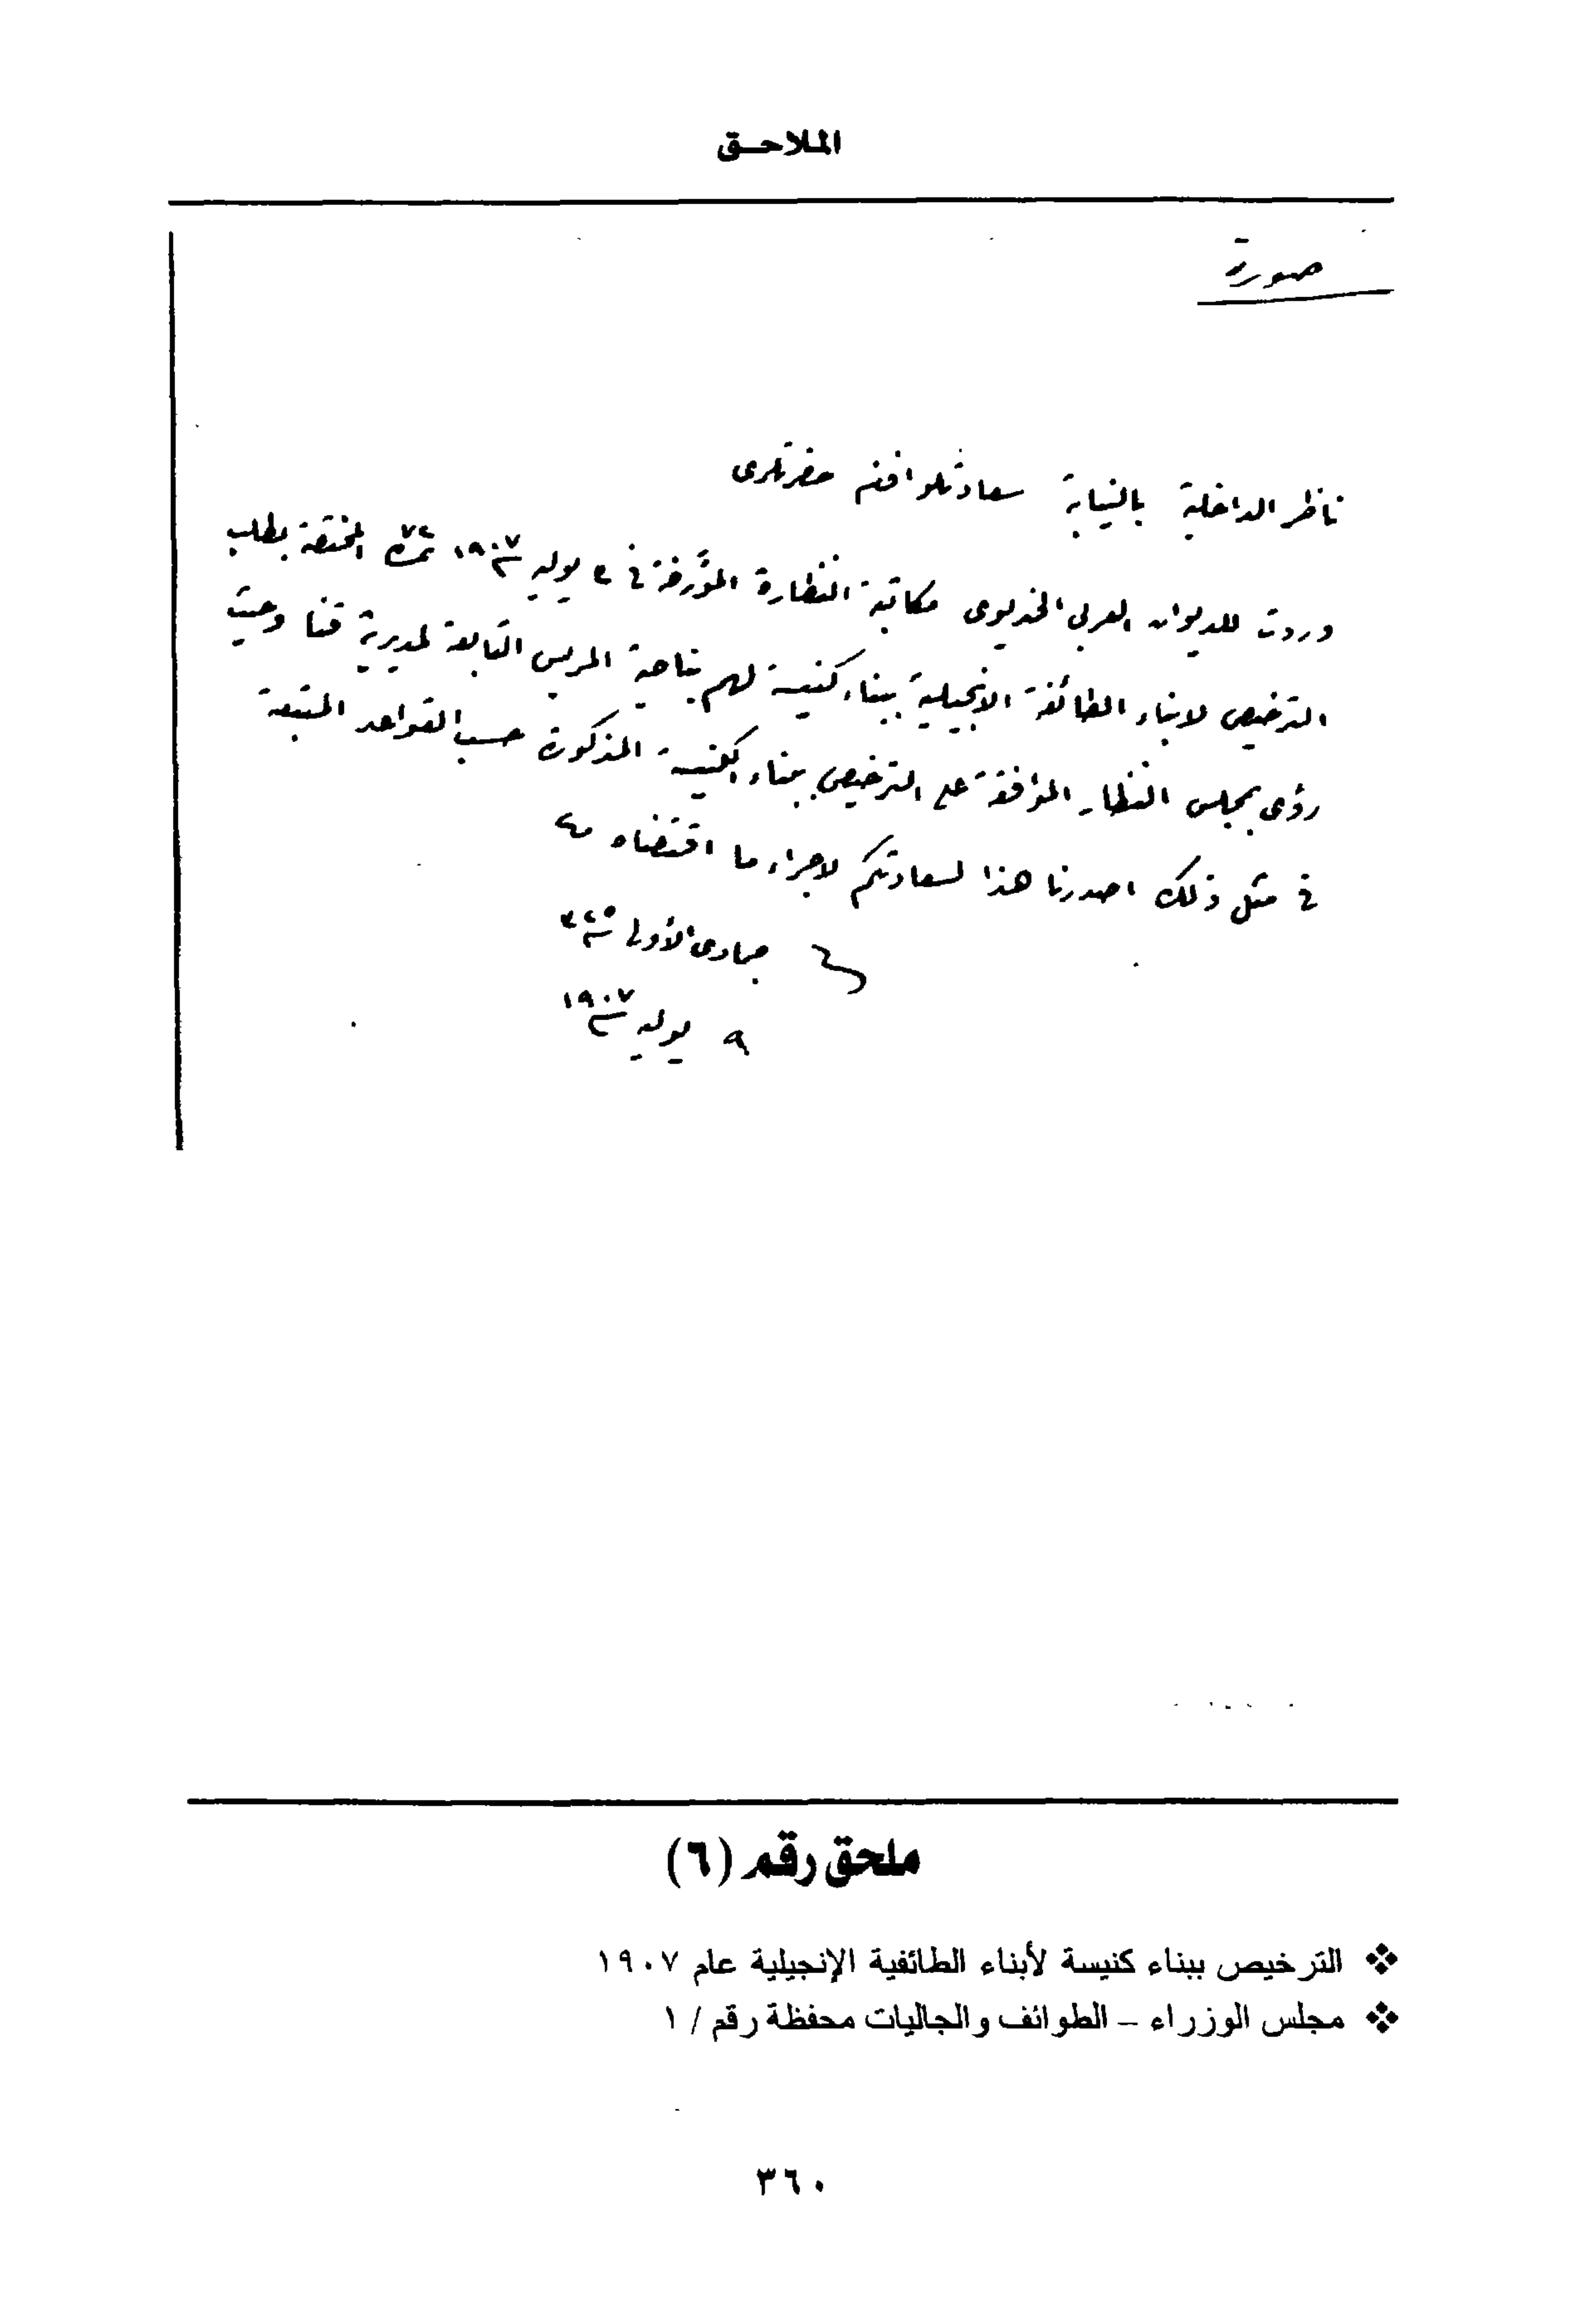 الملاحـق
صورة
ناظر الداخلية بالنيابة سعادتلو افندم حضرتلرى
وردت للديوان العربى الخديوى مكاتبة النظارة المؤرخة فى ٣ يوليه سنة ١٩٠٧ نمرة المختصة بطلب
الترخيص لابناء الطائفة الانجيلية ببناء كنيسة لهم بناحية المريس التابعة لمديرية قنا وحيث
رؤى بمجلس النظار الموافقة على الترخيص ببناء الكنيسة المذكورة حسب القواعد المتبعة
فى مثل ذلك اصدرنا هذا لسعادتكم لاجراء ما اقتضاه
جمادى الأولى سنة ٣٢٥
٩ يوليه سنة ١٩٠٧
ملحق رقم (٦)
❖ الترخيص ببناء كنيسة لأبناء الطائفية الإنجيلية عام ١٩٠٧
❖ مجلس الوزراء – الطوائف والجاليات محفظة رقم / ١
٣٦٠